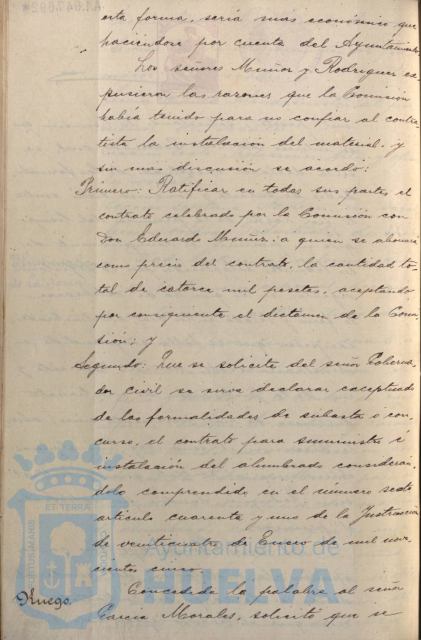 esta forma, sería mas económico que
haciendose por cuenta del Ayuntamiento
Los señores Muñoz y Rodriguez ex
pusieron las razones que la Comisión
había tenido para no confiar al contra
tista la instalación del material. y
sin mas discusión se acordó:
Primero: Ratificar en todas sus partes el
contrato celebrado por la Comisión con
Don Eduardo Muñiz: a quien se abonará
como precio del contrato, la cantidad to
tal de catorce mil pesetas, aceptando
por consiguiente el dictamen de la Comi
sión; y
Segundo: Que se solicite del señor Goberna
dor Civil se sirva declarar exceptuado
de las formalidades de subasta o con
curso, el contrato para suministro e
instalación del alumbrado considerán
dolo comprendido en el número sexto
artículo cuarenta y uno de la Instrucción
de veinticuatro de Enero de mil nove
cientos cinco.
Ruego. Concedida la palabra al señor
García Morales, solicitó que se
ET TERRÆ
Ayuntamiento de
HUELVA